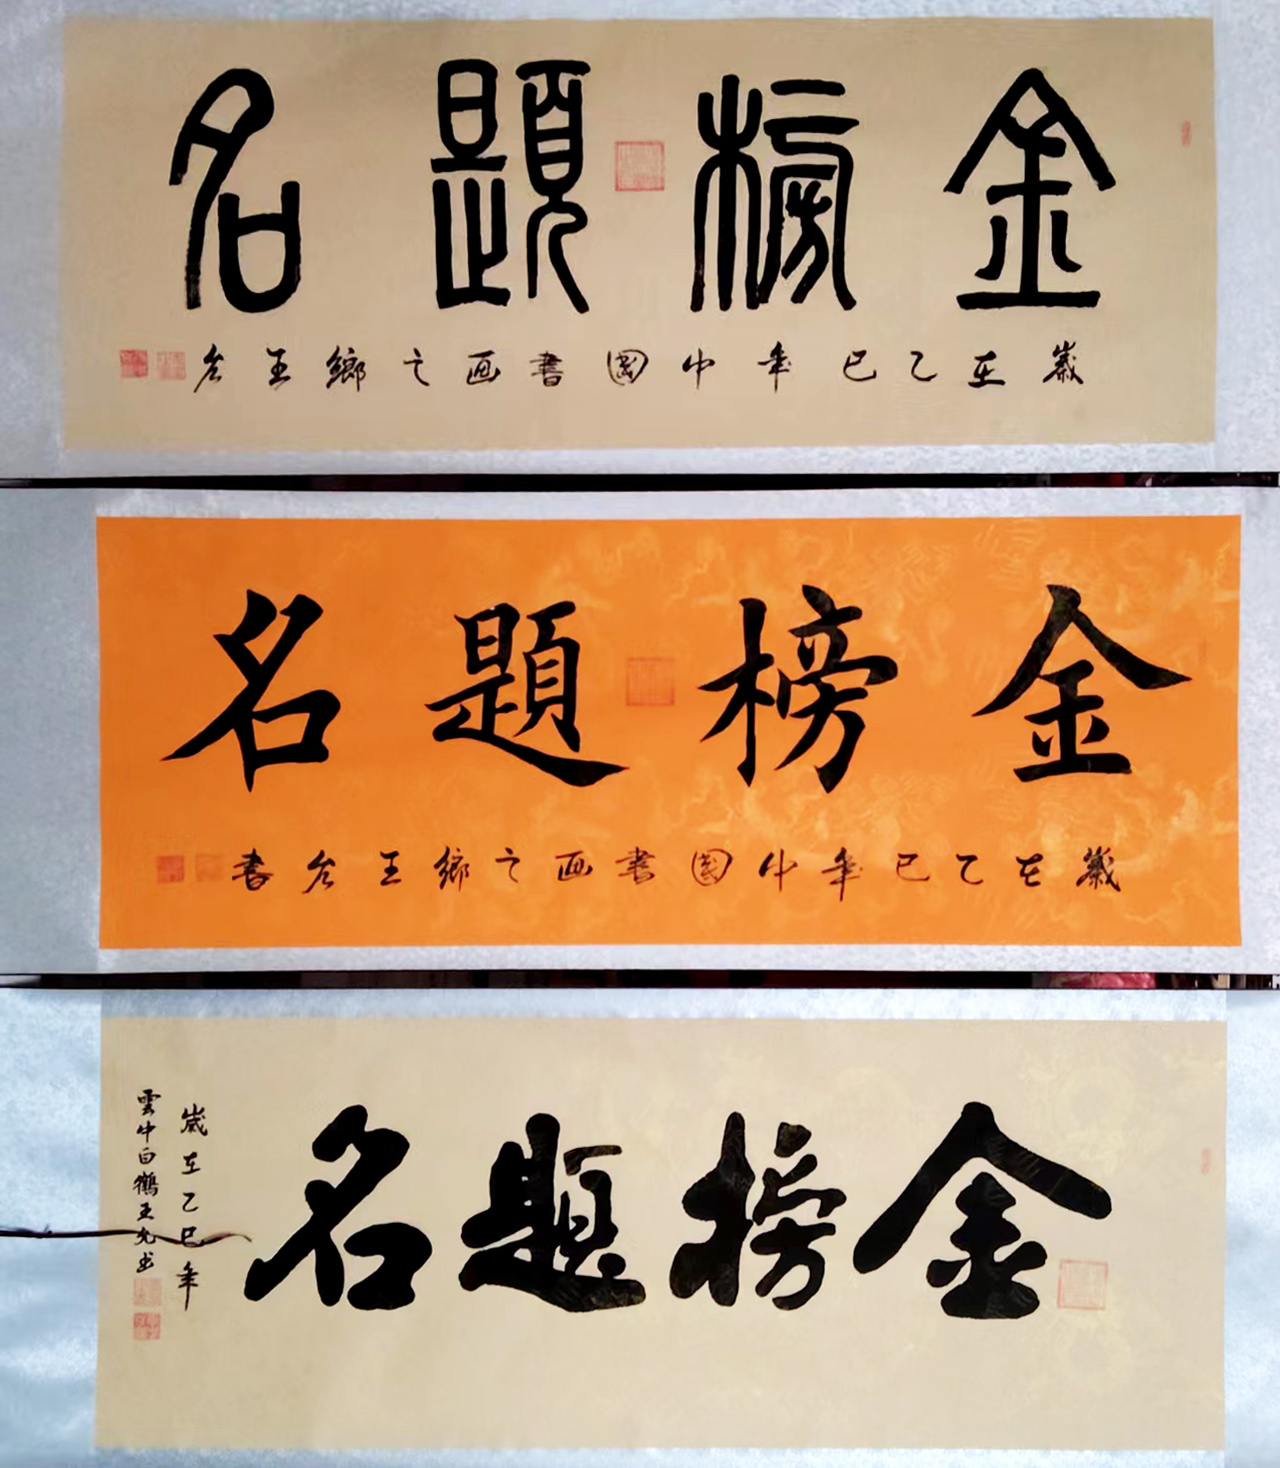 金榜題名
歲在乙巳年中國書画之鄉王允
金榜題名
歲在乙巳年中國書画之鄉王允書
金榜題名
歲在乙巳年
雲中白鶴王允书